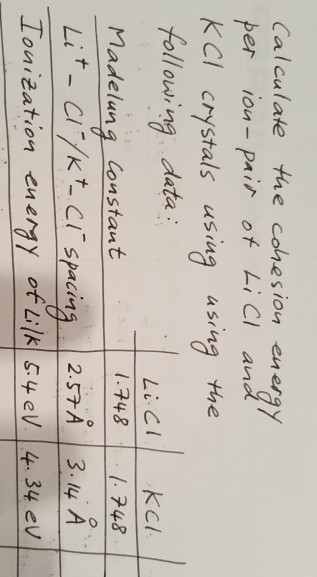 Calculate the cohesion energy
per ion-pair of LiCl and
KCl crystals using using the
following data:
LiCl KCl
Madelung constant 1.748 1.748
Li⁺- Cl⁻/K⁺- Cl⁻ spacing 2.57 Å 3.14 Å
Ionization energy of Li/K 5.4 eV 4.34 eV